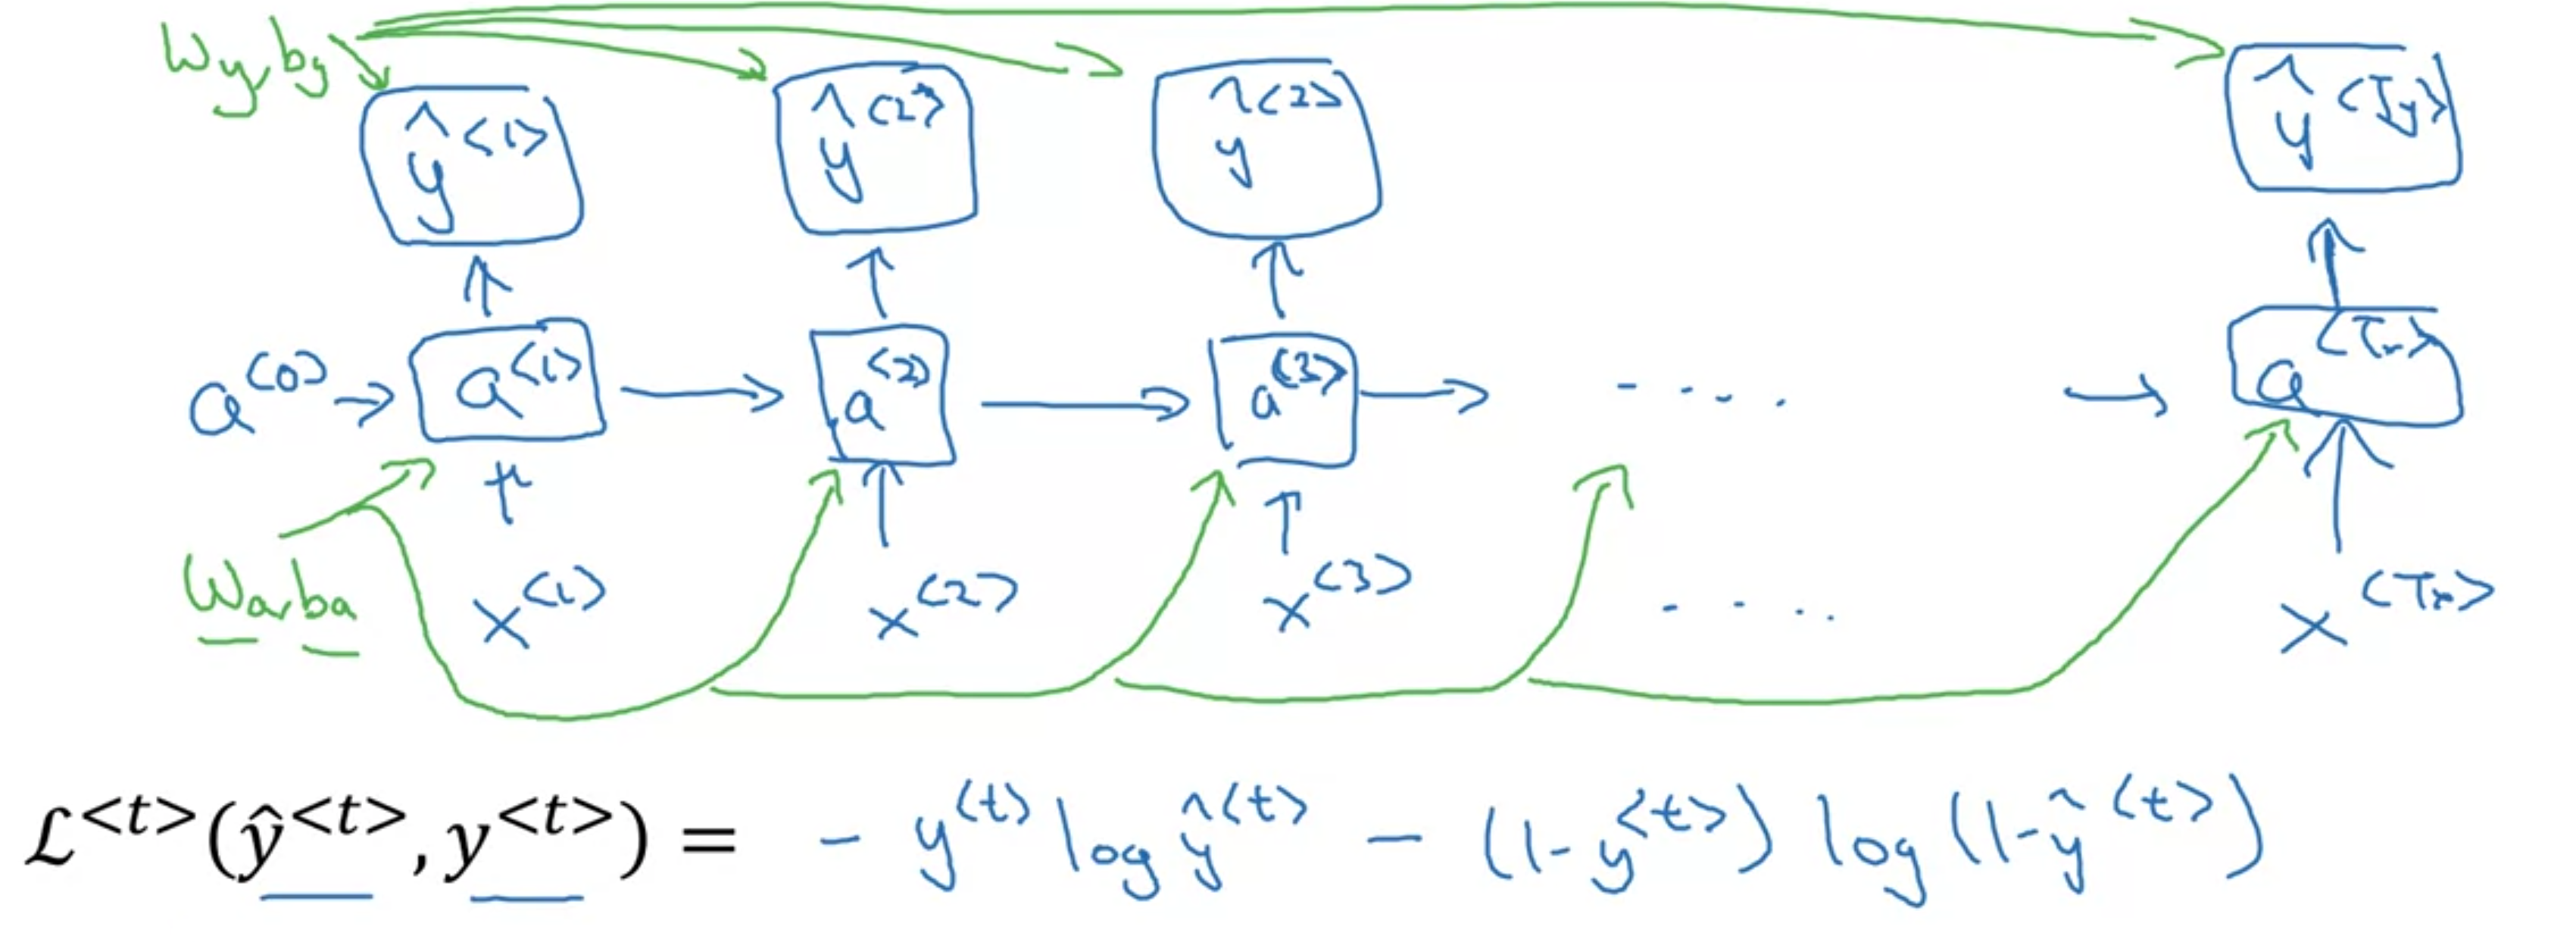 Wy, by
ŷ<1> ŷ<2> ŷ<2> ŷ<Ty>
a<0> → a<1> → a<2> → a<3> → - - - - → a<Tx>
Wa, ba
x<1> x<2> x<3> - - - - x<Tx>
ℒ<t>(ŷ<t>, y<t>) = - y<t> log ŷ<t> - (1-y<t>) log (1-ŷ<t>)